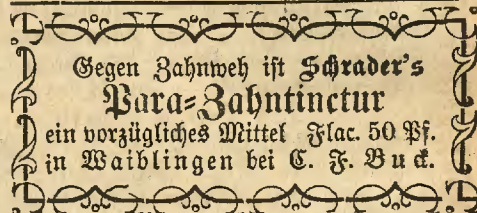 Gegen Zahnweh ist Schrader's
Para-Zahntinctur
ein vorzügliches Mittel Flac. 50 Pf.
in Waiblingen bei C. F. Buck.